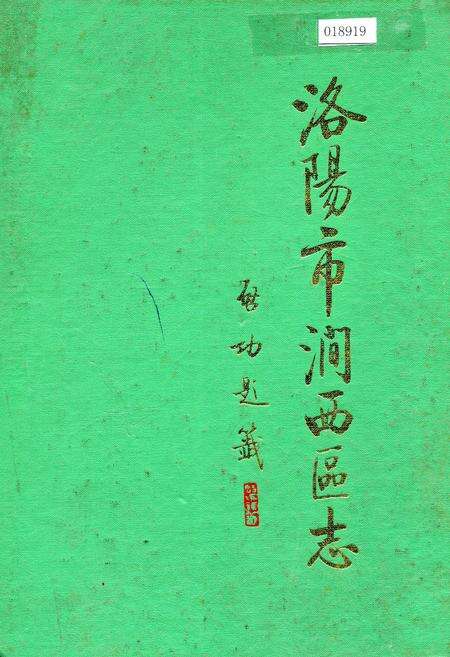 018919
洛陽市澗西區志
啓功題籤